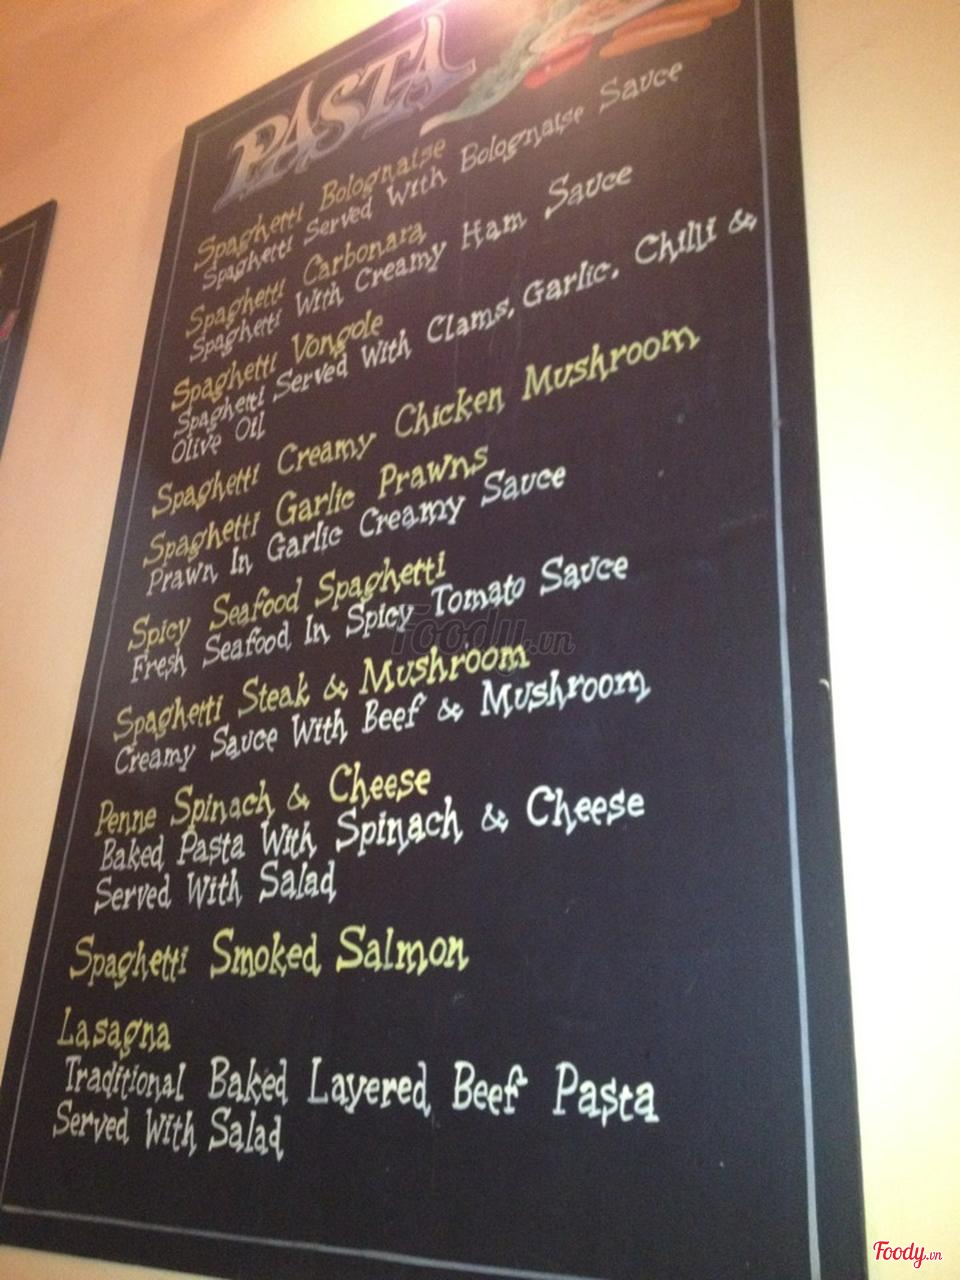 PASTA
Spaghetti Bolognaise
Spaghetti Served With Bolognaise Sauce
Spaghetti Carbonara
Spaghetti With Creamy Ham Sauce
Spaghetti Vongole
Spaghetti Served With Clams, Garlic, Chilli &
Olive Oil
Spaghetti Creamy Chicken Mushroom
Spaghetti Garlic Prawns
Prawn In Garlic Creamy Sauce
Spicy Seafood Spaghetti
Fresh Seafood In Spicy Tomato Sauce
Foody.vn
Spaghetti Steak & Mushroom
Creamy Sauce With Beef & Mushroom
Penne Spinach & Cheese
Baked Pasta With Spinach & Cheese
Served With Salad
Spaghetti Smoked Salmon
Lasagna
Traditional Baked Layered Beef Pasta
Served With Salad
Foody.vn